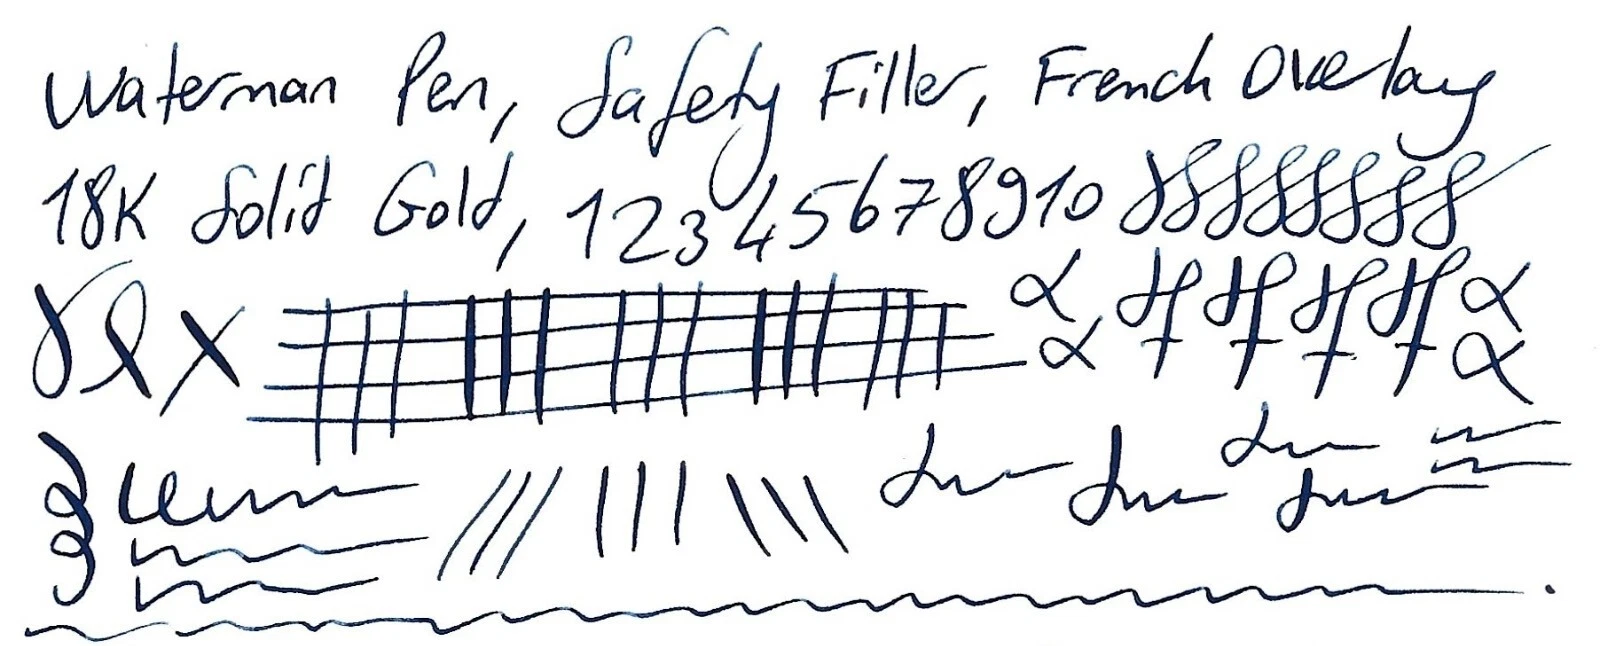 Waterman Pen, Safety Filler, French Overlay
18K Solid Gold, 1 2 3 4 5 6 7 8 9 10